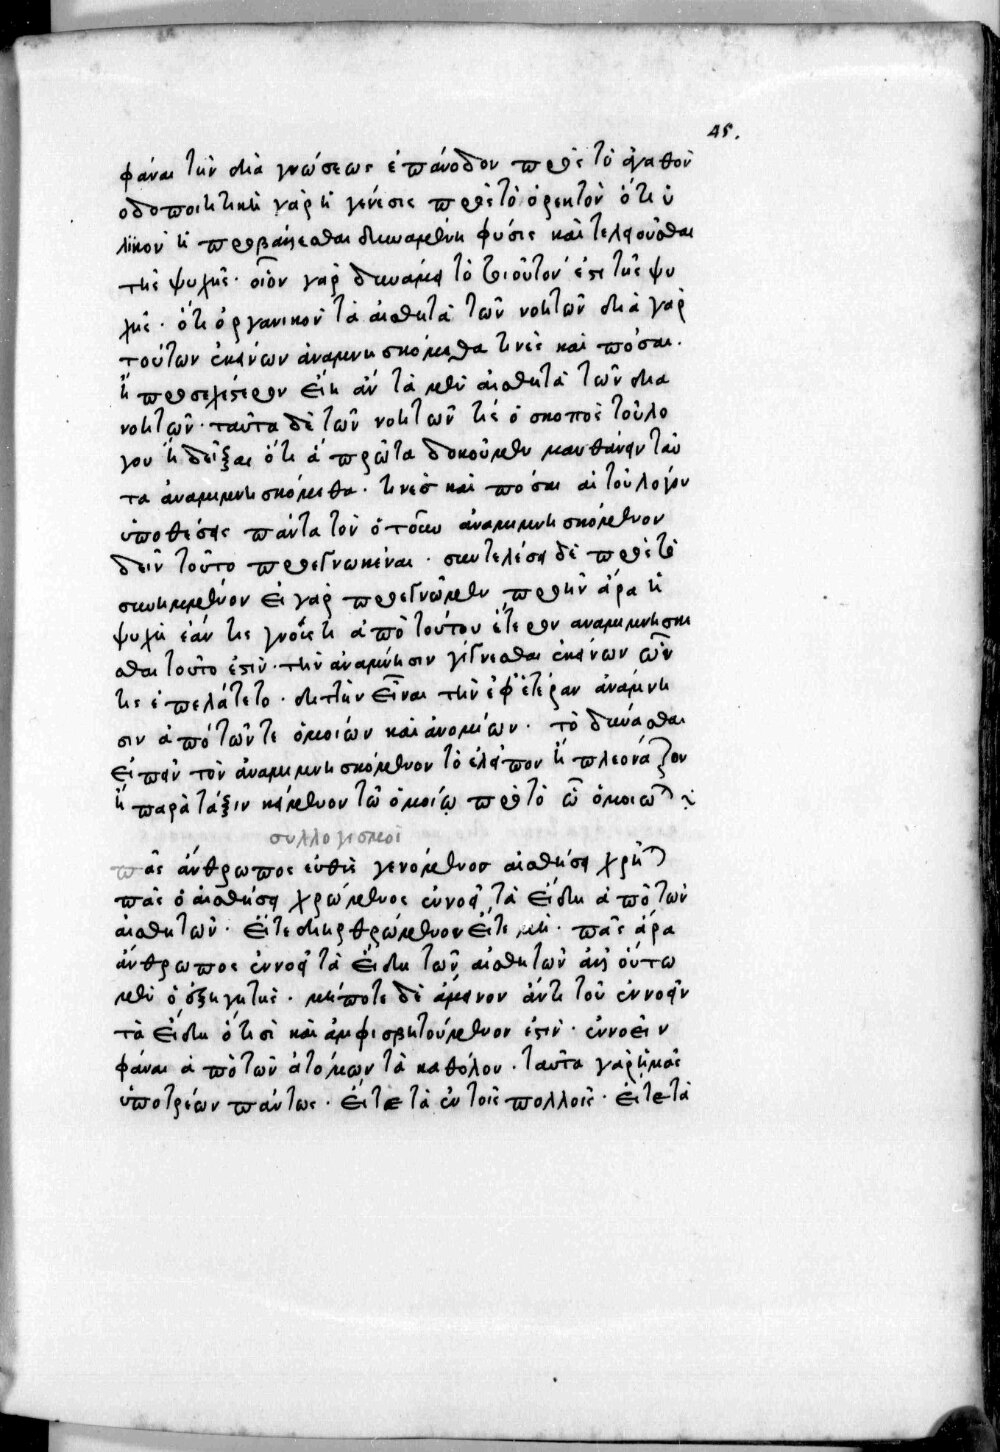 45.
φάναι τὴν διὰ γνώσεως ἐπάνοδον πρὸς τὸ ἀγαθὸν
οδοποιητικὴ γὰρ ἡ γένεσις πρὸς τὸ ὀρεκτὸν ὅτι ὑ
λικὸν ἡ προβάλλεσθαι δυναμένη φύσις καὶ τελειοῦσθαι
τῆς ψυχῆς· οἷον γὰρ δυνάμει τὸ τοιοῦτον ἐστὶ τῆς ψυ
χῆς· ὅτι ὀργανικὸν τὰ αἰσθητὰ τῶν νοητῶν διὰ γὰρ
τούτων ἐκείνων ἀναμιμνησκόμεθα τινὲς καὶ πόσαι.
ἢ προσεχέστερον εἴη ἂν τὰ μὲν αἰσθητὰ τῶν δια
νοητῶν· ταῦτα δὲ τῶν νοητῶν τίς ὁ σκοπὸς τοῦ λό
γου ἢ δεῖξαι ὅτι ἃ πρῶτα δοκοῦμεν μανθάνειν ταῦ
τα ἀναμιμνησκόμεθα· τινεσ καὶ πόσαι αἱ τοῦ λόγου
ὑποθέσεις πάντα τὸν ὁτοῦν ἀναμιμνησκόμενον
δεῖν τοῦτο προεγνωκέναι· συντελέσει δὲ πρὸς τὸ
συνημμένον εἰ γὰρ προέγνωμεν προῆν ἄρα ἡ
ψυχὴ ἐάν τις γνοίς τι ἀπὸ τούτου ἕτερον αναμιμνησκε
σθαι τοῦτο ἐστὶν· τὴν ἀνάμνησιν γίγνεσθαι ἐκείνων ὧν
τις ἐπελάτετο· δητὴν εἶναι τὴν ἐφ' ἑτέραν ἀνάμνη
σιν ἀπό τῶντε ὁμοίων καὶ ἀνομίων· τὸ δύνασθαι
εἰπεῖν τὸν ἀναμιμνησκόμενον τὸ ἐλεῖπον ἢ πλεονάζον
ἢ παρὰ τάξιν κείμενον τῶ ὁμοίῳ πρὸς τὸ ὧ ὁμοιωται
συλλογισμοὶ
πᾶς ἄνθρωπος εὐθὺς γενόμενοσ αἰσθήσει χρῆται
πᾶς ὁ αἰσθήσει χρώμενος ἐννοεῖ τὰ εἴδη ἀπὸ τῶν
αἰσθητῶν· εἴτε διηρθρώμενον εἴτε μή· πᾶς ἄρα
ἄνθρωπος ἐννοεῖ τὰ εἴδη τῶν αἰσθητῶν ἀεὶ οὕτω
μὲν ὁ ἐξηγητής· μήποτε δὲ ἄμεινον ἀντὶ τοῦ ἐννοεῖν
τὰ εἴδη ὅτισὶ καὶ ἀμφισβητούμενον ἐστὶν· ἐννοεῖν
φάναι ἀπὸ τῶν ἀτόμων τὰ καθόλου· ταῦτα γὰρ ἡμᾶς
ὑποτρέων πάντως· εἴτε τὰ ἐν τοῖς πολλοῖς· εἴτε τὰ